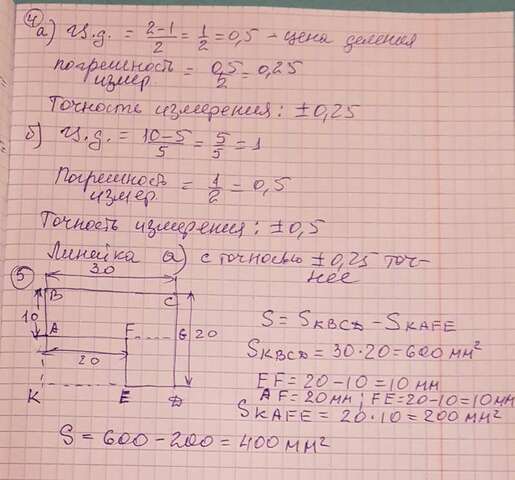 4
а) Ц.д. = (2-1)/2 = 1/2 = 0,5 - цена деления
погрешность измер. = 0,5/2 = 0,25
Точность измерения: ±0,25
б) Ц.д. = (10-5)/5 = 5/5 = 1
Погрешность измер. = 1/2 = 0,5
Точность измерения: ±0,5
Линейка а) с точностью ±0,25 точ-
нее
5
30
B C
10
A F G 20
20
K E D
S = SKBCD - SKAFE
SKBCD = 30·20 = 600 мм²
EF = 20-10 = 10 мм
AF = 20мм; FE=20-10=10мм
SKAFE = 20·10 = 200 мм²
S = 600-200 = 400 мм²